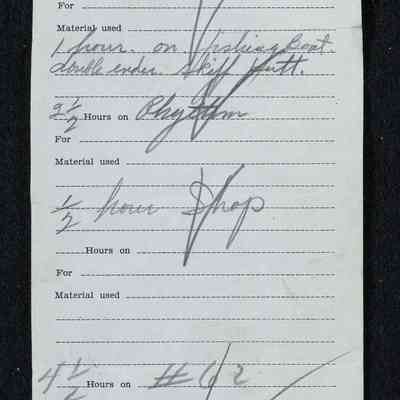 For
Material used
1 hour. on fishing Boat.
double ender. Skiff
2 1/2 Hours on Rhythm
For
Material used
1/2 hour Shop
Hours on
For
Material used
4 1/2 Hours on #62